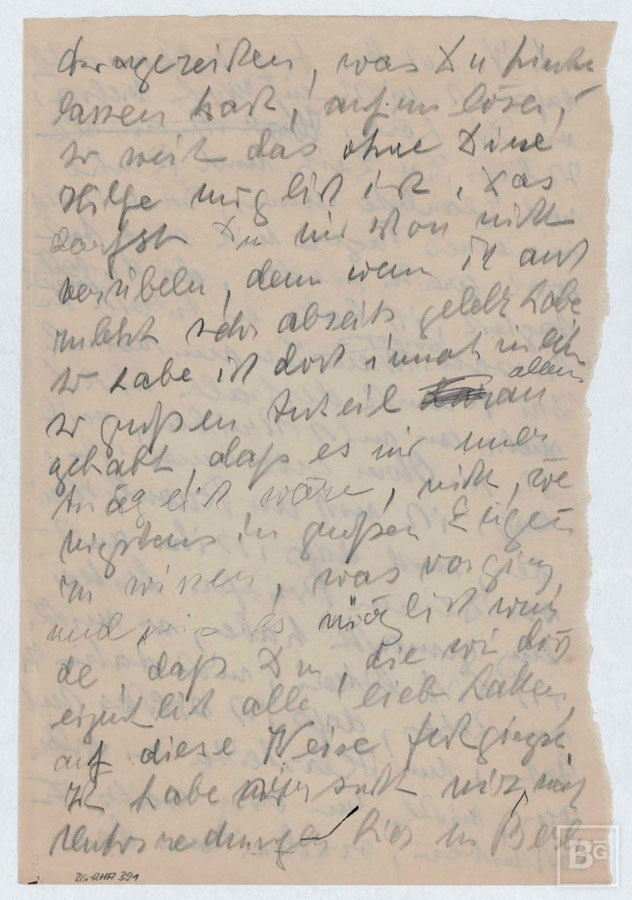 was Du hinter
lassen hast, aufzulösen,
so weit das ohne Deine
Hilfe möglich ist. Das
darfst Du mir schon nicht
verübeln, denn wenn ich auch
zuletzt sehr abseits gelebt habe
so habe ich doch innerlich
so großen Anteil an allem
gehabt, daß es mir uner
träglich wäre, nicht we
nigstens in großen Zügen
zu wissen, was vorging
und wie es möglich wur
de, daß Du, die wir doch
eigentlich alle lieb hatten,
auf diese Weise
Ich habe mich nach
Unterredungen hier in Berl
BG
BG-RHA 391